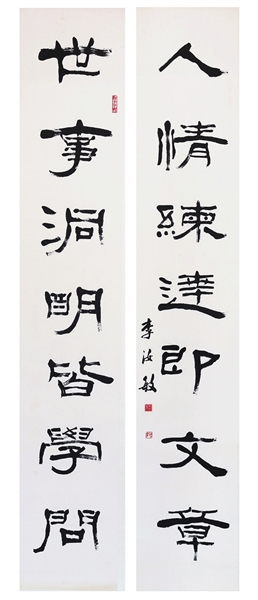 世事洞明皆學問
人情練達即文章
李汝敏